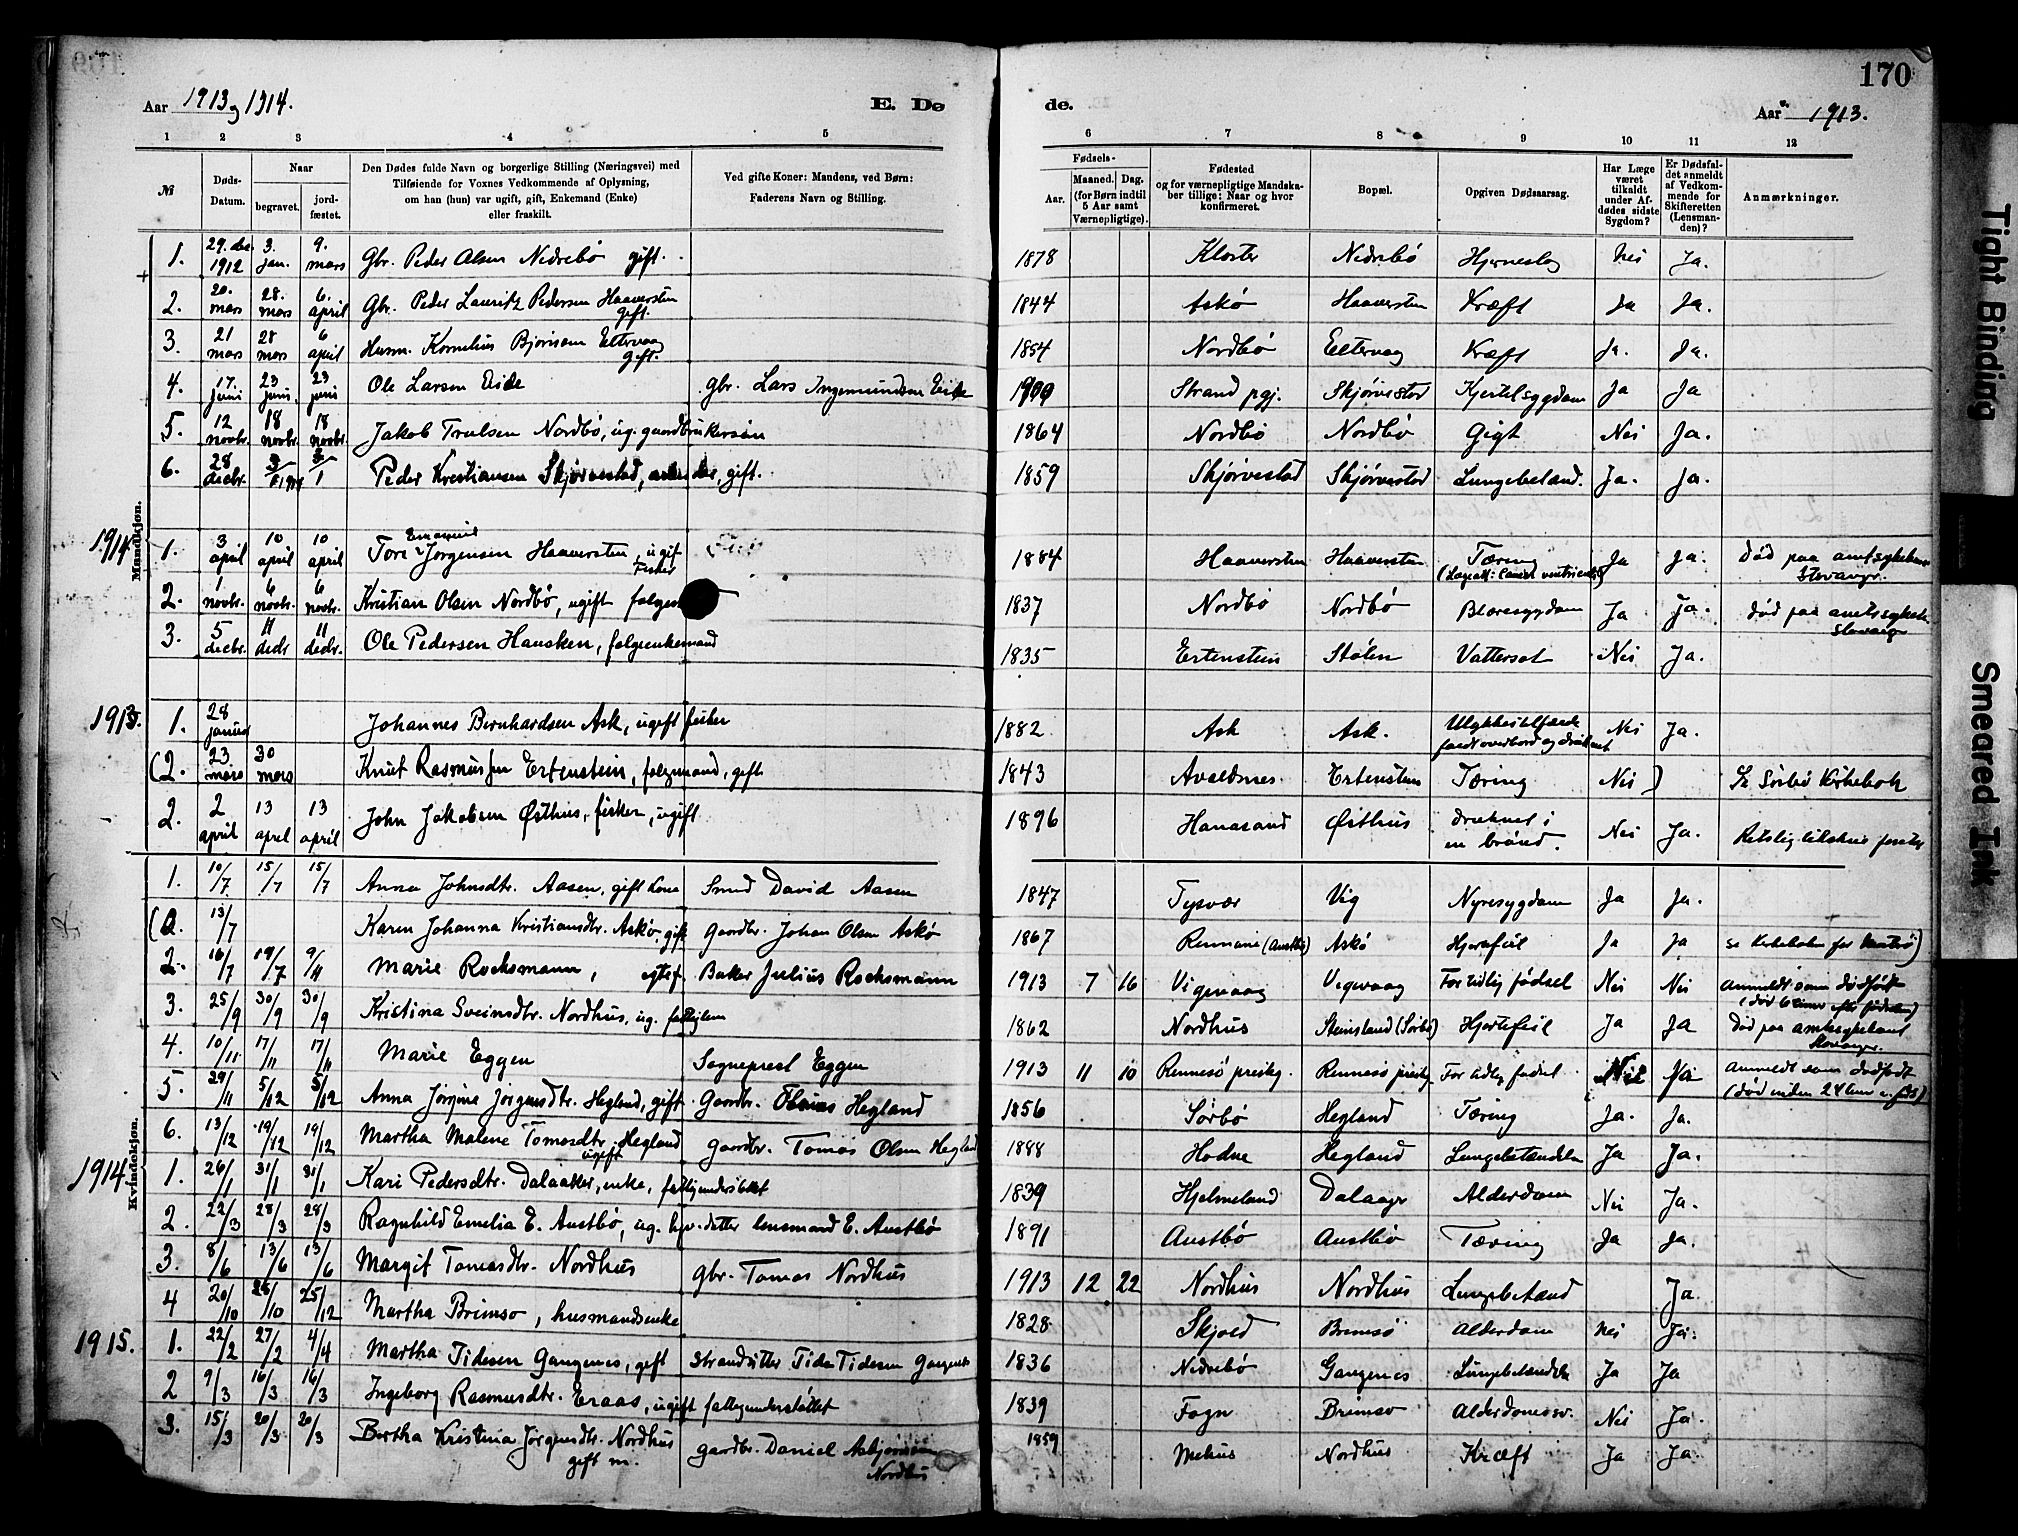 170
Aar 1913 og 1914. E. Dø de. Aar 1913.
1 2 3 4 5 6 7 8 9 10 11 12
№
Døds-Datum.
Naar
begravet.
jord-fæstet.
Den Dødes fulde Navn og borgerlige Stilling (Næringsvei) med
Tilføiende for Voxnes Vedkommende af Oplysning,
om han (hun) var ugift, gift, Enkemand (Enke)
eller fraskilt.
Ved gifte Koner: Mandens, ved Børn:
Faderens Navn og Stilling.
Fødsels-
Aar.
Maaned. Dag.
(for Børn indtil
5 Aar samt
Værnepligtige).
Fødested
og for værnepligtige Mandska-
ber tillige: Naar og hvor
konfirmeret.
Bopæl.
Opgiven Dødsaarsag.
Har Læge
været
tilkaldt
under Af-
dødes sidste
Sygdom?
Er Dødsfal-
det anmeldt
af Vedkom-
mende for
Skifteretten
(Lensman-
den)?
Anmærkninger.
Mandkjøn.
1. 29. des. 1912 3. jan. 9. mars Gbr. Peder Olsen Nedrebø gift. 1878 Kloster Nedrebø Hjerneslag Nei Ja.
2. 20. mars 28. mars 6. april Gbr. Peder Lauritz Pedersen Haaversten gift. 1844 Askø Haaversten Kræft Ja Ja.
3. 21 mars 28 mars 6 april Husm. Kornelius Bjørnsen Eltervaag gift. 1854 Nordbø Eltervaag Kræft Ja. Ja.
4. 17. juni 23 juni. 23 juni Ole Larsen Eide gbr. Lars Ingemundsen Eide 1900 Strand pgj. Skjørvestad Kjertelsygdom Ja Ja
5. 12 novbr. 18 novbr. 18 novbr. Jakob Trulsen Nordbø, ug. gaardbrukersøn 1864 Nordbø Nordbø Gigt Nei Ja.
6. 28 decbr. 3/1 1914 3/1 Peder Kristiansen Skjørvestad, gift. 1859 Skjørvestad Skjørvestad Lungebetænd. Ja. Ja.
1914 1. 3 april 10 april 10 april Tore Emanuel Jørgensen Haaversten, ugift Fisker 1884 Haaversten Haaversten Tæring Ja Ja. Død paa amtssykehus Stavanger.
2. 1 novbr. 6 novbr. 6 novbr. Kristian Olsen Nordbø, ugift 1837 Nordbø Nordbø Blæresygdom Ja Ja. død paa amtssykeh. Stavanger
3. 5 decbr. 11 decbr 11 decbr. Ole Pedersen Hausken, følgeenkemand 1835 Ertenstein Stølen Vattersot Nei Ja.
1915. 1. 28 januar Johannes Bernhardsen Ask, ugift fisker 1882 Ask Ask. Ulykkestilfælde faldt overbord og druknet Nei Ja.
(2. 23 mars 30 mars Knut Rasmussen Ertenstein, følgemand, gift 1843 Avaldsnes Ertenstein Tæring Nei ) Se Sørbø Kirkebok
2. 2 april 13 april 13 april John Jakobsen Østhus, fisker, ugift 1896 Hanasand Østhus druknet i en brønd. Nei Ja.
Kvindekjøn.
1. 10/7 15/7 15/7 Anna Johnsdtr. Aasen, gift kone Smed David Aasen 1847 Tysvær Vig Nyresygdom Ja Ja.
(2. 13/7 Karen Johanna Kristiansdtr. Askø, gift Gaardbr. Johan Olsen Askø 1867 Rennesø (Austbø) Askø Hjertefeil Ja Ja se Kirkeboken for )
2. 16/7 19/7 9/11 Marie Rocksmann, Baker Julius Rocksmann 1913 7 16 Vigevaag Vigevaag For tidlig fødsel Nei Nei Anmeldt som dødfødt
3. 25/9 30/9 30/9 Kristina Sveinsdtr. Nordhus, ug. fattiglem 1862 Nordhus Steinsland (Sørbø) Hjertefeil Ja Ja Død paa amtssykehuset Stavanger.
4. 10/11 17/11 17/11 Marie Eggen Sogneprest Eggen 1913 11 10 Rennesø prestg. Rennesø prestg. For tidlig fødsel Nei Ja Anmeldt som dødfødt
5. 29/11 5/12 5/12 Anna Jørgine Jørgensdtr. Hegland, gift. Gaardbr. Hegland 1856 Sørbø Hegland Tæring Ja. Ja.
6. 13/12 19/12 19/12 Martha Malene Tomasdtr. Hegland ugift Gaardbr. Tomas Olsen Hegland 1888 Hodne Hegland Lungebetændelse Ja Ja.
1914. 1. 26/1 31/1 31/1 Kari Pedersdtr. Dalaaker, enke, fattigunderstøttet 1839 Hjelmeland Dalaager Alderdom Nei Ja.
2. 22/3 28/3 28/3 Ragnhild Emelia E. Austbø, ug. datter lensmand E. Austbø 1891 Austbø Austbø Tæring Ja Ja.
3. 8/6 13/6 13/6 Margit Tomasdtr. Nordhus gbr. Tomas Nordhus 1913 12 22 Nordhus Nordhus Lungebetænd Ja.
4 20/10 26/10 25/12 Martha Brimsø, husmandsenke 1828 Skjold Brimsø Alderdom Nei Ja.
1915. 1. 22/2 27/2 4/4 Martha Tidesen Gangenes, gift Strandsitter Tide Tidesen Gangenes 1836 Nedrebø Gangenes Lungebetændelse Ja Ja
2 9/3 16/3 16/3 Ingeborg Rasmusdtr. Eraas, ugift fattigunderstøttet 1839 Fogn Brimsø Alderdomssv. Nei Ja.
3. 15/3 20/3 20/3 Bertha Kristina Jørgensdtr. Nordhus gift m. gaardbr. Daniel Asbjørnsen Nordhus 1859 Mehus Nordhus Kræft Ja Ja
Tight Binding
Smeared Ink